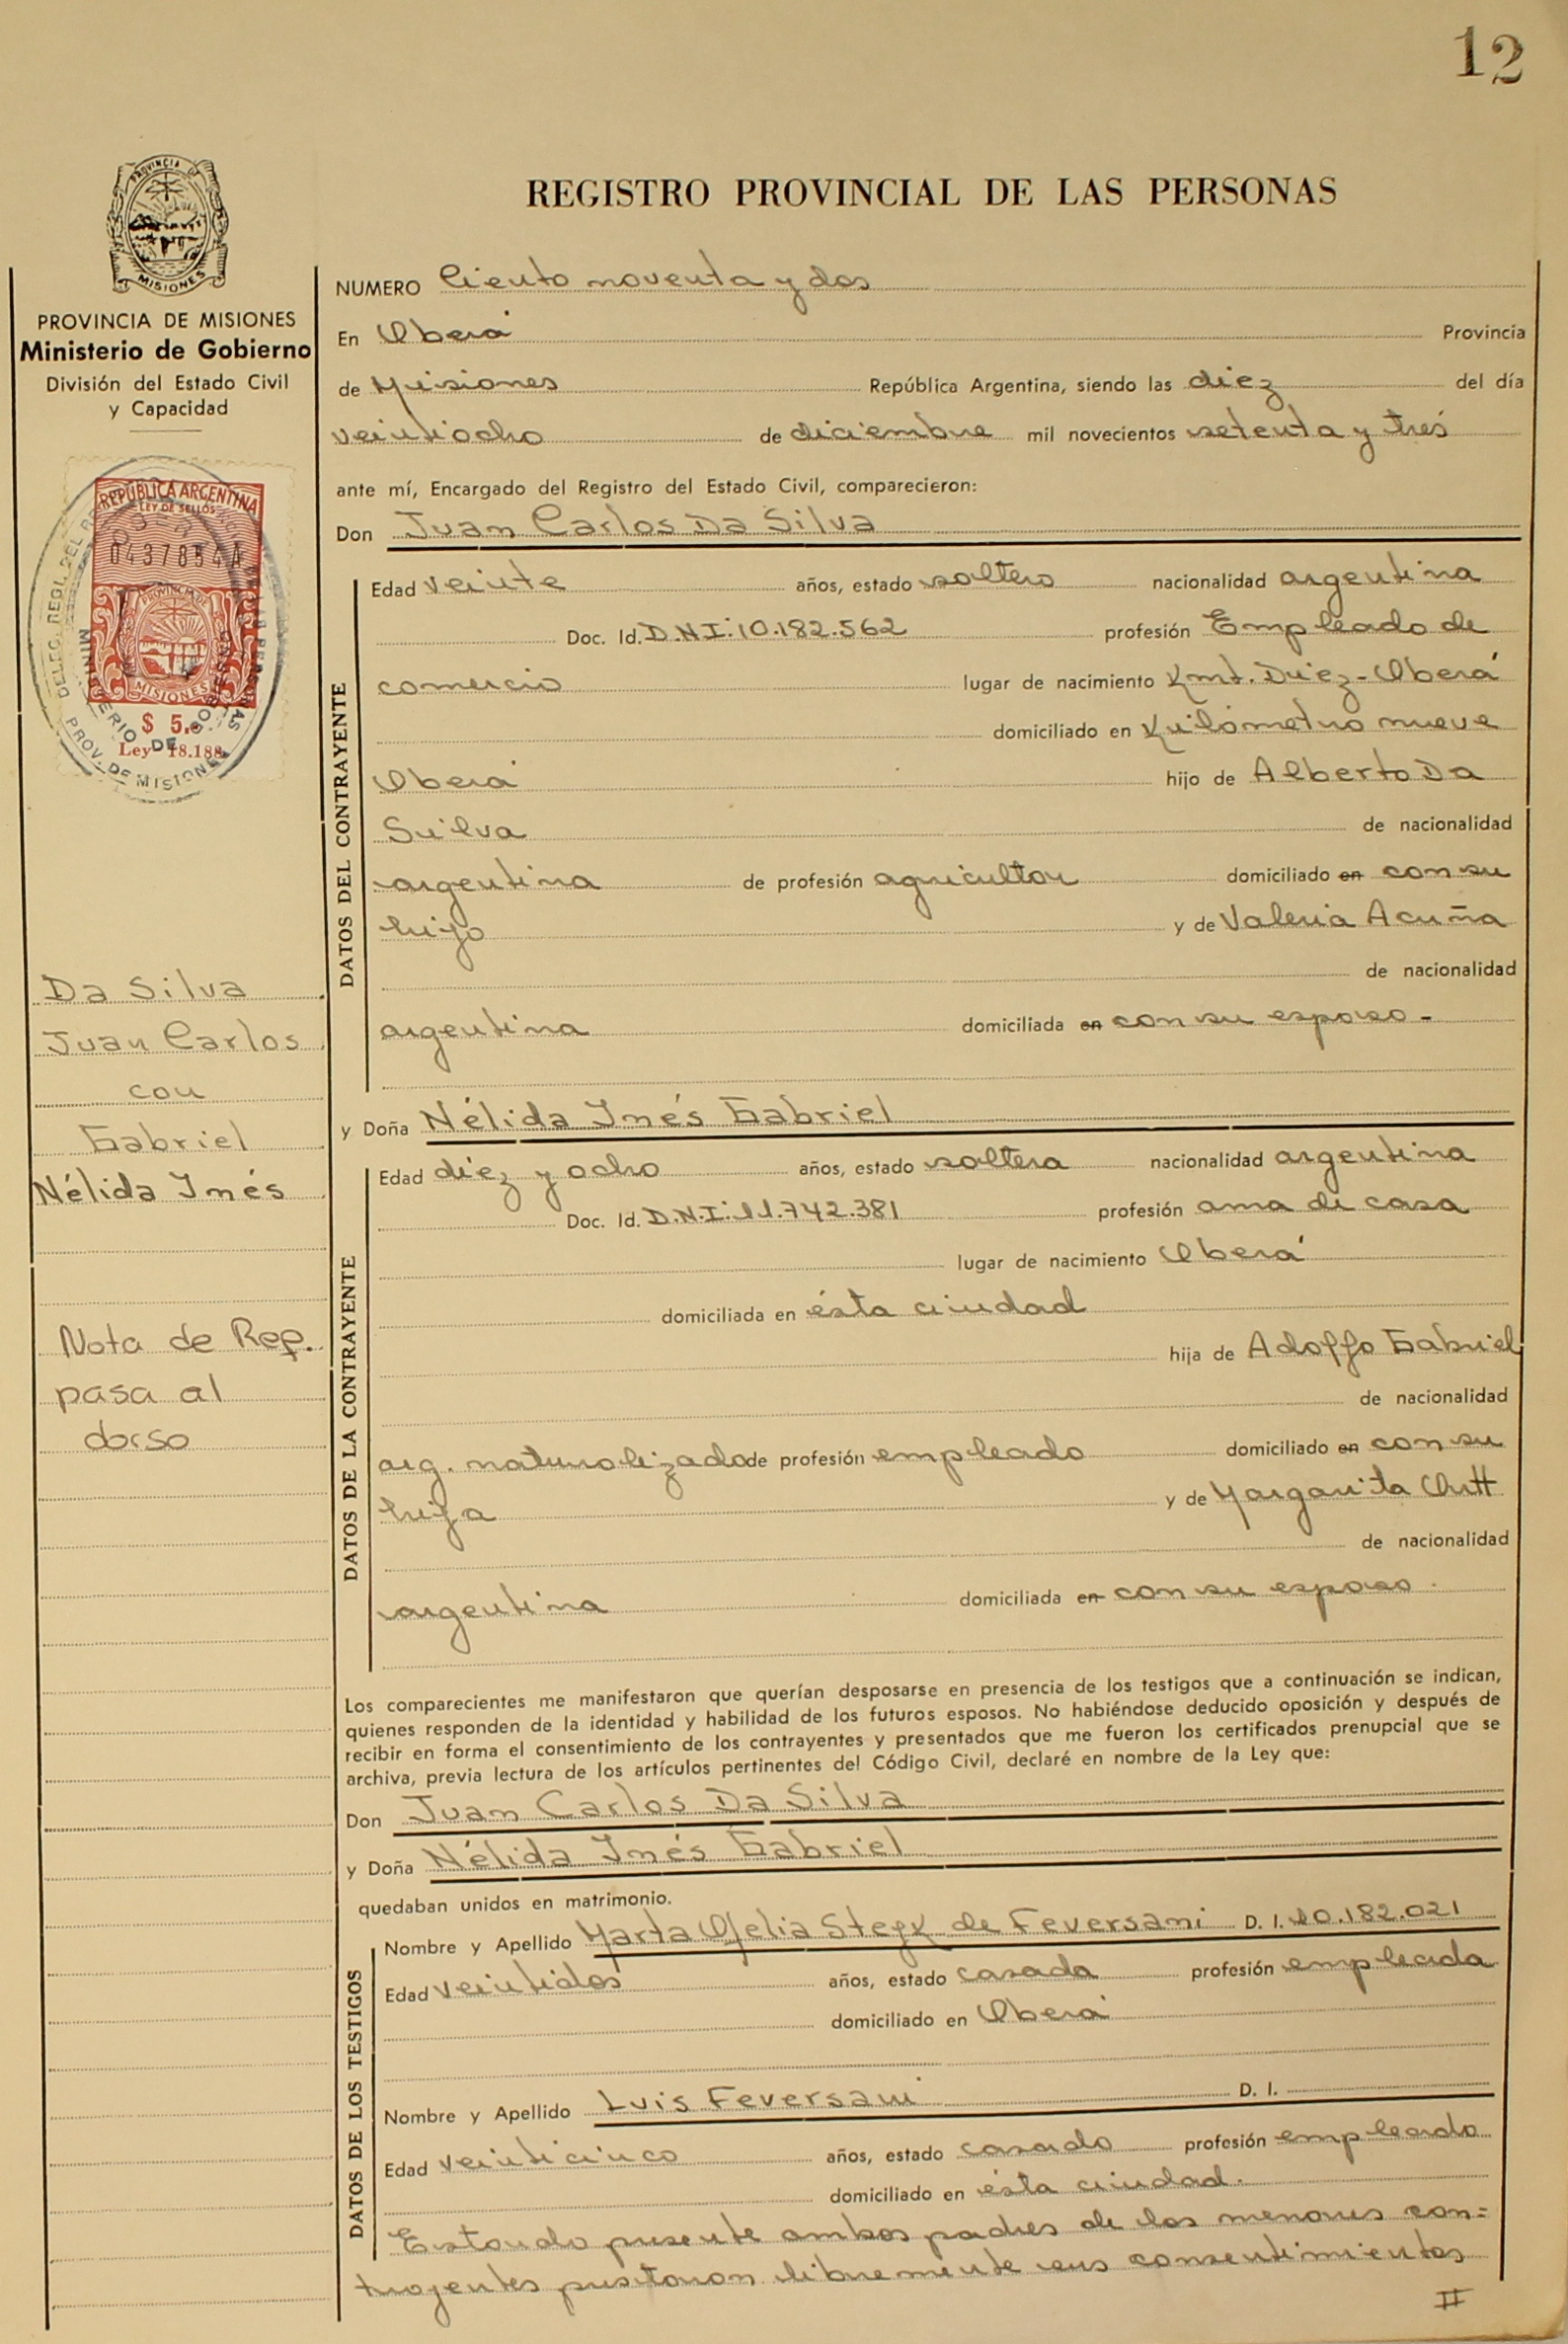 12
PROVINCIA DE
MISIONES
PROVINCIA DE MISIONES
Ministerio de Gobierno
División del Estado Civil
y Capacidad
REPUBLICA ARGENTINA
LEY DE SELLOS
0437854A
PROVINCIA DE
MISIONES
$ 5.
Ley 18.188
MINISTERIO DE GOBIERNO
PROV. DE MISIONES
Da Silva
Juan Carlos
con
Gabriel
Nélida Inés
Nota de Rep.
pasa al
dorso
REGISTRO PROVINCIAL DE LAS PERSONAS
NUMERO Ciento noventa y dos
En Oberá Provincia
de Misiones República Argentina, siendo las diez del día
veintiocho de diciembre mil novecientos setenta y trés
ante mí, Encargado del Registro del Estado Civil, comparecieron:
Don Juan Carlos Da Silva
DATOS DEL CONTRAYENTE
Edad veinte años, estado soltero nacionalidad argentina
Doc. Id. D.N.I: 10.182.562 profesión Empleado de
comercio lugar de nacimiento Kmt. Diez-Oberá
domiciliado en Kilómetro nueve
Oberá hijo de Alberto Da
Silva de nacionalidad
argentina de profesión agricultor domiciliado en con su
hijo y de Valeria Acuña
de nacionalidad
argentina domiciliada en con su esposo -
y Doña Nélida Inés Gabriel
DATOS DE LA CONTRAYENTE
Edad diez y ocho años, estado soltera nacionalidad argentina
Doc. Id. D.N.I: 11.742.381 profesión ama de casa
lugar de nacimiento Oberá
domiciliada en ésta ciudad
hija de Adolfo Gabriel
de nacionalidad
arg. naturalizado de profesión empleado domiciliado en con su
hija y de Margarita
de nacionalidad
argentina domiciliada en con su esposo.
Los comparecientes me manifestaron que querían desposarse en presencia de los testigos que a continuación se indican,
quienes responden de la identidad y habilidad de los futuros esposos. No habiéndose deducido oposición y después de
recibir en forma el consentimiento de los contrayentes y presentados que me fueron los certificados prenupcial que se
archiva, previa lectura de los artículos pertinentes del Código Civil, declaré en nombre de la Ley que:
Don Juan Carlos Da Silva
y Doña Nélida Inés Gabriel
quedaban unidos en matrimonio.
DATOS DE LOS TESTIGOS
Nombre y Apellido Marta Ofelia de Feversani D. I. 10.182.021
Edad veintidos años, estado casada profesión empleada
domiciliado en Oberá
Nombre y Apellido Luis Feversani D. I.
Edad veinticinco años, estado casado profesión empleado
domiciliado en ésta ciudad.
Estando presente ambos padres de los menores con=
trayentes prestaron libremente sus consentimientos
II